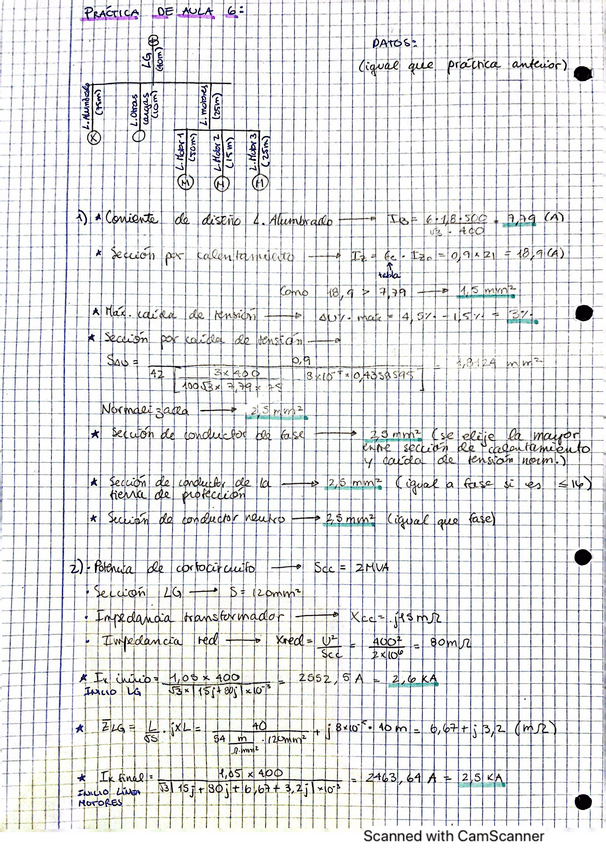 PRÁCTICA DE AULA 6:
LG (40m)
DATOS:
(igual que práctica anterior)
L. Alumbrado (75m)
L. Otras cargas (10m)
L. motores (25m)
L. Motor 1 (20m)
L. Motor 2 (15m)
L. Motor 3 (25m)
X
M M M
1) * Corriente de diseño L. Alumbrado → IB = 6·1,8·500 / √3 · 400 = 7,79 (A)
* Sección por calentamiento → Iz = fc · Izo = 0,9 × 21 = 18,9 (A)
tabla
Como 18,9 > 7,79 → 1,5 mm²
* Máx. caída de tensión → ΔU% máx = 4,5% - 1,5% = 3%
* Sección por caída de tensión →
SΔU = 0,9 / 42 [ 3 × 400 / 100√3 × 7,79 × 75 - 8×10⁻⁵ × 0,4358595 ] = 1,8124 mm²
Normalizada → 2,5 mm²
* Sección de conductor de fase → 2,5 mm² (se elije la mayor
entre sección de calentamiento
y caída de tensión norm.)
* Sección de conductor de la → 2,5 mm² (igual a fase si es ≤16)
tierra de protección
* Sección de conductor neutro → 2,5 mm² (igual que fase)
2) · Potencia de cortocircuito → Scc = 2 MVA
· Sección LG → S = 120mm²
· Impedancia transformador → Xcc = j15 mΩ
· Impedancia red → Xred = U² / Scc = 400² / 2×10⁶ = 80 mΩ
* Ik inicio = 1,05 × 400 / √3 × |15j + 80j| × 10⁻³ = 2552,5 A = 2,6 KA
INICIO LG
* Z̄LG = L / σS · jXL = 40 / 54 m / Ω·mm² · 120mm² + j 8×10⁻⁵ · 40 m = 6,67 + j 3,2 (mΩ)
* Ik final = 1,05 × 400 / √3 |15j + 80j + 6,67 + 3,2j| × 10⁻³ = 2463,64 A = 2,5 KA
INICIO LÍNEA
MOTORES
Scanned with CamScanner